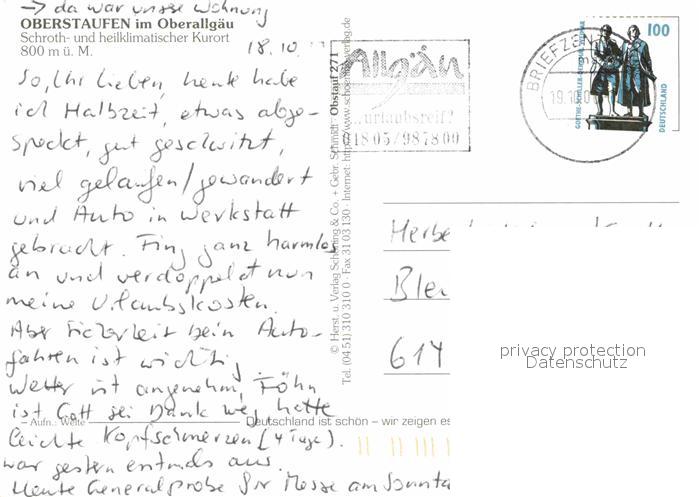 → da war unsere Wohnung
OBERSTAUFEN im Oberallgäu
Schroth- und heilklimatischer Kurort
800 m ü. M.
18.10.
So, Ihr Lieben, heute habe
ich Halbzeit, etwas abge-
speckt, gut geschwitzt,
viel gelaufen/gewandert
und Auto in Werkstatt
gebracht. Fing ganz harmlos
an und verdoppelt nun
meine Urlaubskosten.
Aber Sicherheit beim Auto-
fahren ist wichtig.
Wetter ist angenehm, Föhn
ist Gott sei Dank weg, hatte
leichte Kopfschmerzen (4 Tage).
war gestern erstmals aus.
Heute Generalprobe für Messe am Sonnta
Aufn.: Weite
Deutschland ist schön – wir zeigen es
© Herst. u. Verlag Schöning & Co. + Gebr. Schmidt Obstauf 271
Tel. (04 51) 310 310 0 · Fax 31 03 130 · Internet: http://www.schoening-verlag.de
Allgäu
...urlaubsreif?
01805/987800
BRIEFZEN
19.10.0
GOETHE-SCHILLER-DENKMAL WEIMAR
100
DEUTSCHLAND
Herbe
Blei
614
privacy protection
Datenschutz